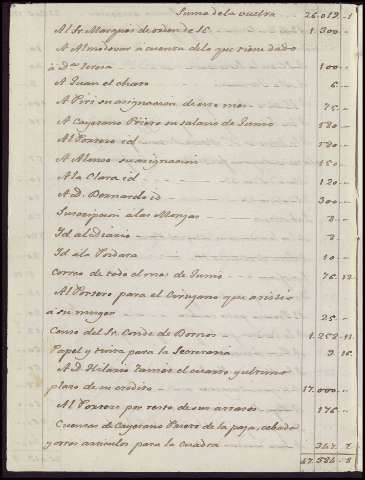 Suma de la vuelta - - 26.019 - 1
Al Sr. Marques de orden de SE. - 1.300 -
A Almodovar a cuenta de lo que tiene dado
à Dª Teresa - - - 100 -
A Juan el - - - 6 -
A Piri su asignacion de ese mes - - - 75 -
A Cayetano Prieto su salario de Junio - 180 -
Al Portero id - - - 180 -
A Alonso su asignacion - - - 150 -
A la Clara id - - - 120 -
A D. Bernardo id - - - 300 -
Suscripcion a las Monjas - - - 8 -
Id al diario - - - 8 -
Id à la - - - 10 -
Correo de todo el mes de Junio - - - 76. 12
Al Portero para el Cirujano que asistio
a su muger - - - 25 -
Censo del Sr. Conde de Bornos - - 1.252 -
Papel y tinta para la Secretaria - - 9. 16
A D. Hilario el cuarto y ultimo
plazo de su credito - - - 17.000 -
Al Portero por resto de sus atrasos - - 176 -
Cuentas de Cayetano Prieto de la paja, cebada
y otros articulos para la cuadra - - 367. 2
47.586 - 8